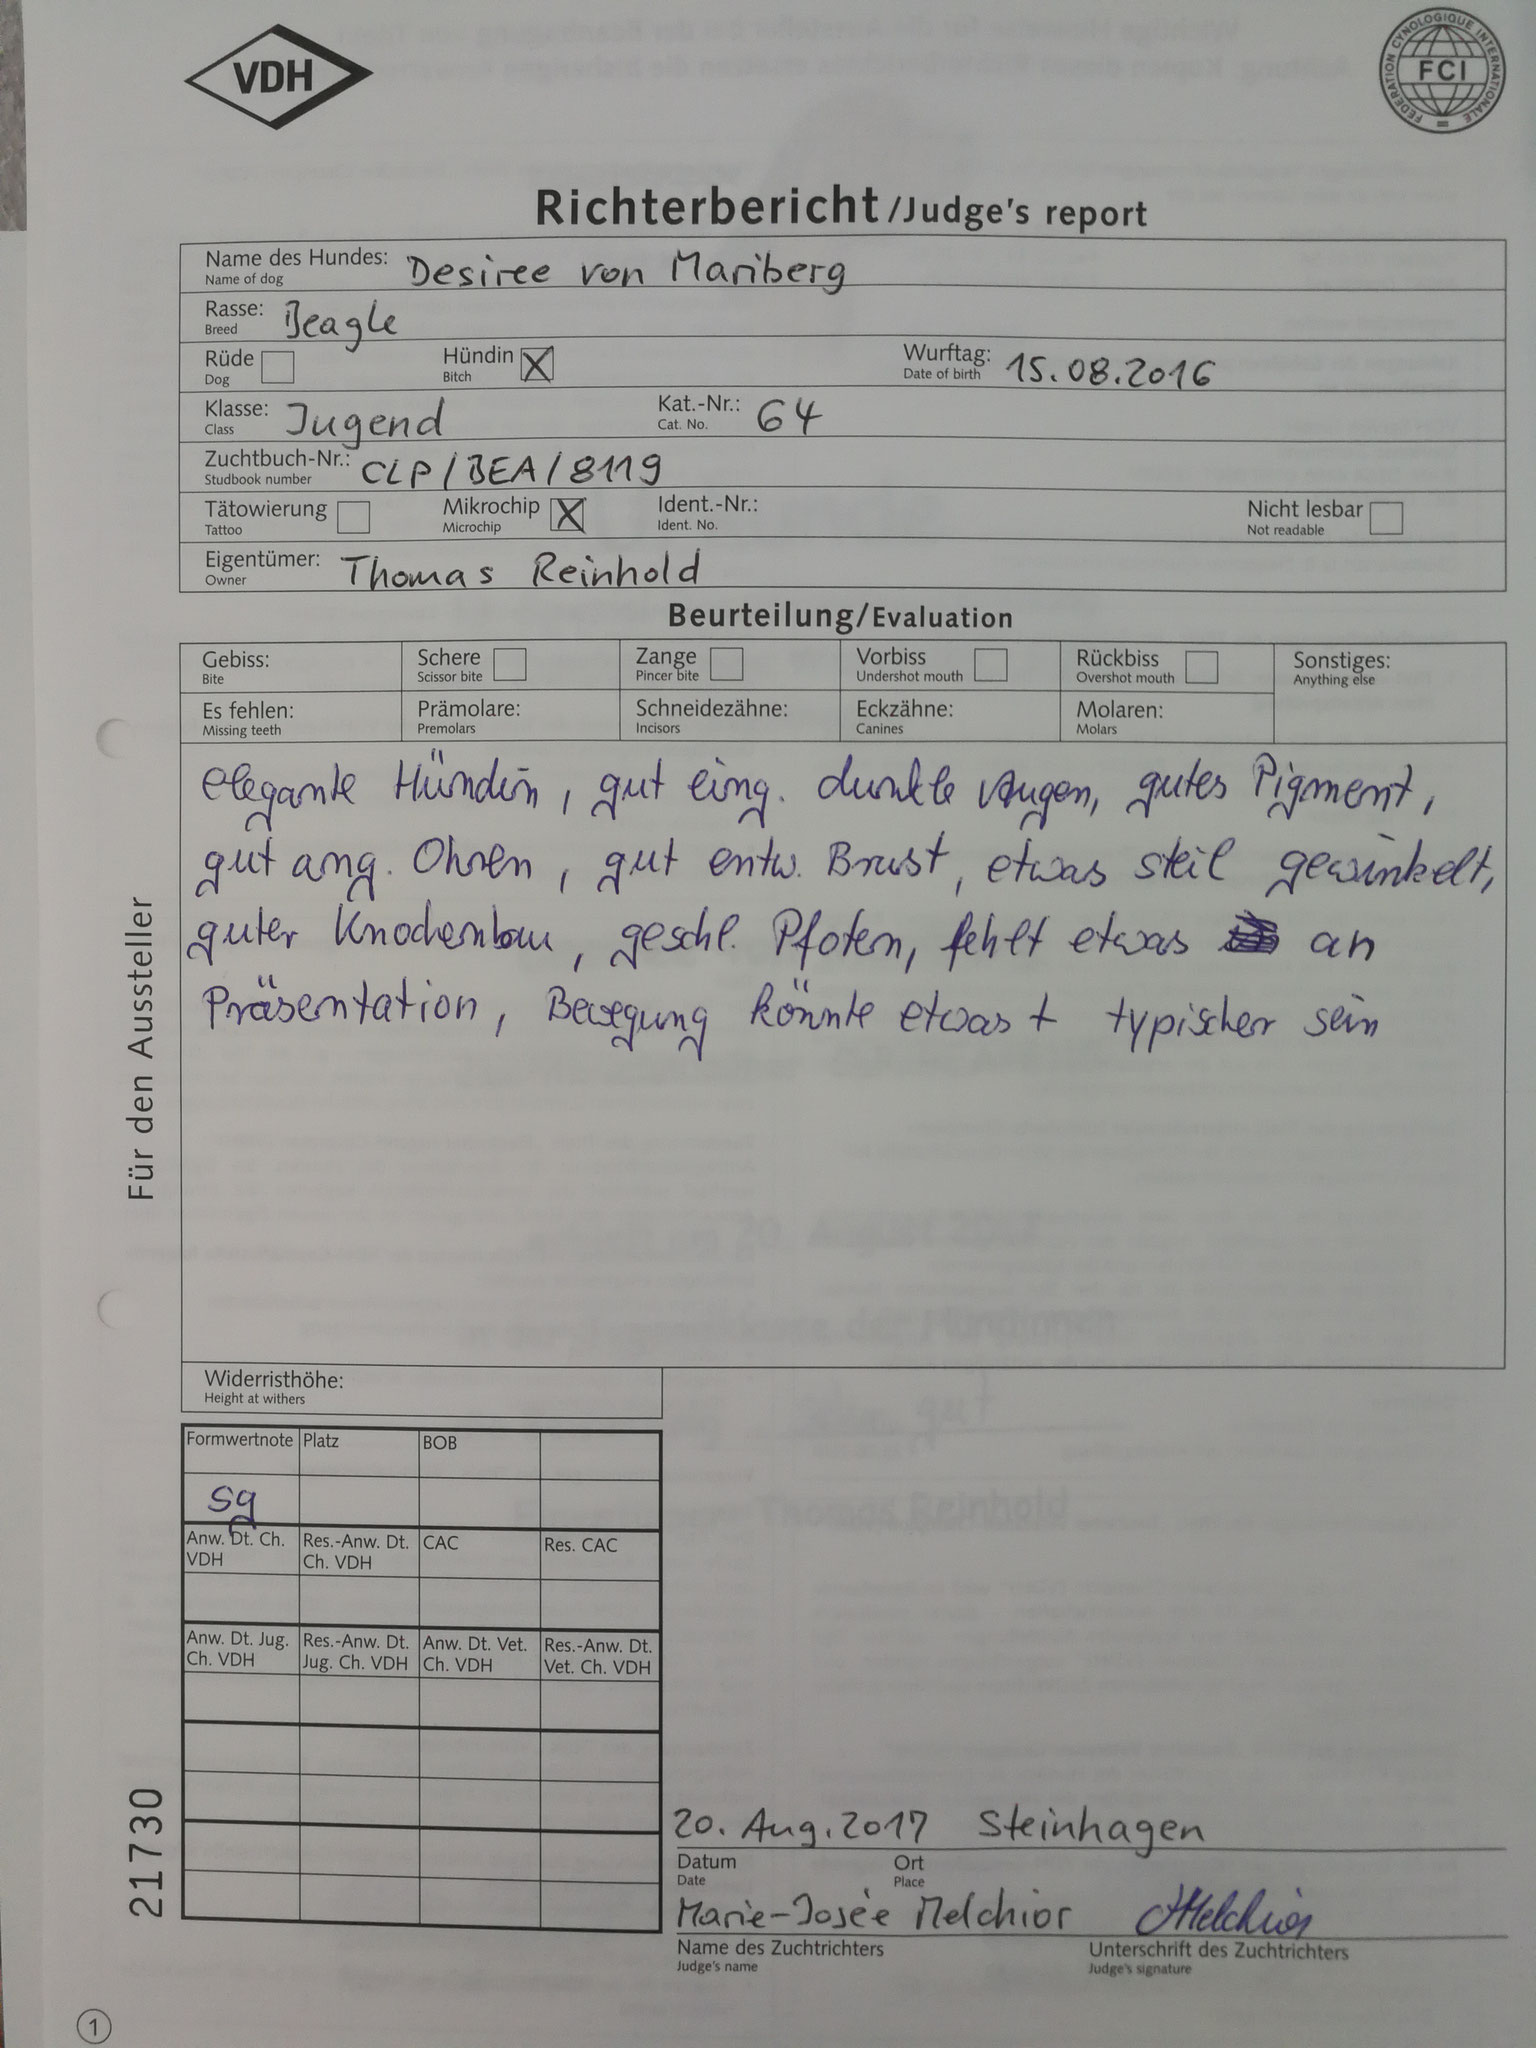 VDH
FEDERATION CYNOLOGIQUE INTERNATIONALE
FCI
Richterbericht/Judge's report
Name des Hundes: Desiree von Mariberg
Name of dog
Rasse: Beagle
Breed
Rüde Hündin X Wurftag: 15.08.2016
Dog Bitch Date of birth
Klasse: Jugend Kat.-Nr.: 64
Class Cat. No.
Zuchtbuch-Nr.: CLP/BEA/8119
Studbook number
Tätowierung Mikrochip X Ident.-Nr.: Nicht lesbar
Tattoo Microchip Ident. No. Not readable
Eigentümer: Thomas Reinhold
Owner
Beurteilung/Evaluation
Gebiss: Schere Zange Vorbiss Rückbiss Sonstiges:
Bite Scissor bite Pincer bite Undershot mouth Overshot mouth Anything else
Es fehlen: Prämolare: Schneidezähne: Eckzähne: Molaren:
Missing teeth Premolars Incisors Canines Molars
elegante Hündin, gut eing. dunkle Augen, gutes Pigment,
gut ang. Ohren, gut entw. Brust, etwas steil gewinkelt,
guter Knochenbau, geschl. Pfoten, fehlt etwas an
Präsentation, Bewegung könnte etwas + typischer sein
Für den Aussteller
Widerristhöhe:
Height at withers
Formwertnote Platz BOB
sg
Anw. Dt. Ch. VDH Res.-Anw. Dt. Ch. VDH CAC Res. CAC
Anw. Dt. Jug. Ch. VDH Res.-Anw. Dt. Jug. Ch. VDH Anw. Dt. Vet. Ch. VDH Res.-Anw. Dt. Vet. Ch. VDH
21730
20. Aug. 2017 Steinhagen
Datum Ort
Date Place
Marie-Josée Melchior Melchior
Name des Zuchtrichters Unterschrift des Zuchtrichters
Judge's name Judge's signature
1